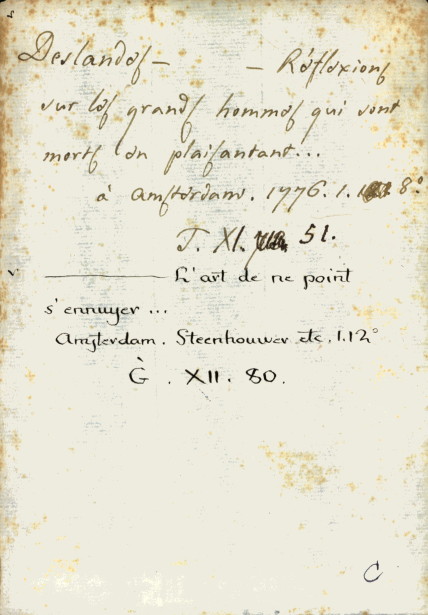 Deslandes — — Réflexions
sur les grands hommes qui sont
morts en plaisantant...
à Amsterdam. 1776. 1. 8°
T. XI. 51.
L'art de ne point
s'ennuyer...
Amsterdam. Steenhouwer etc. 1.12°
G. XII. 80.
C